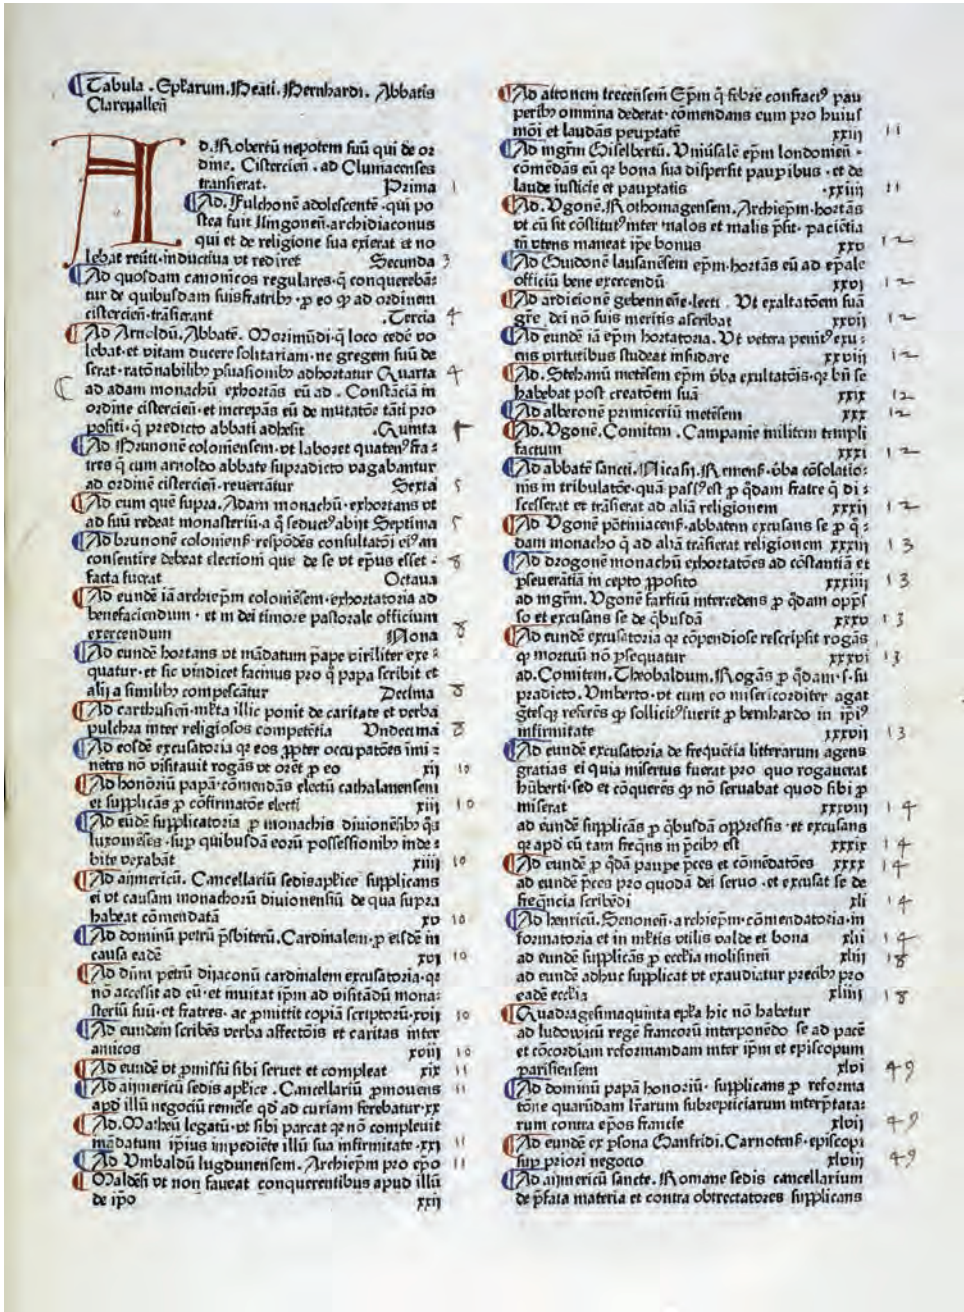 Tabula . Epl̄arum . Beāti . Bernhardi . Abbatis
Clareuallen̄
AD . Robertū nepotem suū qui de or
dine . Cistercien̄ . ad Cluniacenses
transierat . Prima 1
Ad . Fulchonē adolescentē . qui po
stea fuit lingonen̄ . archidiaconus
qui et de religione sua exierat et no
lebat reūti . inductiua vt rediret Secunda 3
Ad quosdam canonicos regulares . q̄ conquerebā:
tur de quibusdam suis fratribȝ . ꝑ eo ꝙ ad ordinem
cistercien̄ . trāsierant . Tercia 4
Ad Arnoldū . Abbatē . Morimūdi . q̄ loco cedē vo
lebat . et vitam ducere solitariam . ne gregem suū de
serat . ratōnabilibȝ ꝑsuasionibȝ adhortatur Quarta 4
ad adam monachū exhortās eū ad . Constāciā in
ordine cistercien̄ . et increpās eū de mutatōe tāti pro
positi . q̄ predicto abbati adhesit . Quinta
Ad Brunonē coloniensem . vt laboret quatenꝰ fra:
tres q̄ cum arnoldo abbate supradicto vagabantur
ad ordinē cistercien̄ . reuertātur Sexta 5
Ad eum quē supra . Adam monachū . exhortans vt
ad suū redeat monasteriū . a q̄ seductꝰ abijt Septima 5
Ad brunonē coloniens̄ . respōdēs consultatōi eiꝰ an
consentire debeat electioni que de se vt ep̄us esset : 8
facta fuerat Octaua
Ad eundē iā archiep̄m coloniēsem . exhortatoria ad
benefaciendum . et in dei timore pastorale officium
exercendum Nona 8
Ad eundē hortans vt mādatum pape viriliter exe:
quatur . et sic vindicet facinus pro q̄ papa scribit et
alij a similibȝ compescātur Decima 8
Ad carthusien̄ . ml̄ta illic ponit de caritate et verba
pulchra inter religiosos competētia Vndecima 8
Ad eosdē excusatoria qꝛ eos ꝓpter occupatōes īmi:
nētes nō visitauit rogās vt orēt ꝑ eo xij 10
Ad honoriū papā . cōmendās electū cathalanensem
et supplicās ꝑ cōfirmatōe electi xiij 10
Ad eūdē supplicatoria ꝑ monachis diuionēsibȝ q̄s
luxouiēses . sup quibusdā eorū possessionibȝ inde:
bite vexabāt xiiij 10
Ad aijmericū . Cancellariū sedis apl̄ice supplicans
ei vt causam monachorū diuionensiū de qua supra
habeat cōmendatā xv 10
Ad dominū petrū p̄sbiterū . Cardinalem . ꝑ eisdē in
causa eadē xvj 10
Ad dn̄m petrū dijaconū cardinalem excusatoria . qꝛ
nō accessit ad eū . et inuitat ip̄m ad visitādū mona:
steriū suū . et fratres . ac ꝓmittit copiā scriptorū . xvij 10
Ad eundem scribēs verba affectōis et caritas inter
amicos xviij 10
Ad eundē vt ꝓmissū sibi seruet et compleat xix 11
Ad aijmericū sedis apl̄ice . Cancellariū ꝓmouens 11
apd illū negociū remēse qd̄ ad curiam ferebatur . xx
Ad . Matheū legatū . vt sibi parcat qꝛ nō compleuit
mādatum ip̄ius impediēte illū sua infirmitate . xxj 11
Ad Vmbaldū lugdunensem . Archiep̄m pro ep̄o 11
Maldēsi vt non faueat conquerentibus apud illū
de ip̄o xxij
Ad attonem trecēsem Ep̄m q̄ febre confractꝰ pau
peribȝ omnina dederat . cōmendans eum pro huius
mōi et laudās pauꝑtatē xxiij 11
Ad mgr̄m Giselbertū . Vniūsalē ep̄m londonien̄ .
cōmēdās eū qꝛ bona sua disꝑsit paupibus . et de
laude iusticie et pauꝑtatis . xxiiij 11
Ad . Vgonē . Rothomagensem . Archiep̄m . hortās
vt cū sit cōstitutꝰ inter malos et malis p̄sit . paciētia
tn̄ vtens maneat ip̄e bonus xxv 12
Ad Guidonē lausanēsem ep̄m . hortās eū ad ep̄ale
officiū bene exercendū xxvj 12
Ad ardicionē gebennen̄ electi . Vt exaltatōem suā
gr̄e dei nō suis meritis ascribat xxvij 12
Ad eundē iā ep̄m hortatoria . Vt vetera penitꝰ exu:
ens virtutibus studeat insudare xxviij 12
Ad . Stehanū metēsem ep̄m v̄ba exultatōis . qꝛ bn̄ se
habebat post creatōem suā xxix 12
Ad alberonē primiceriū metēsem xxx 12
Ad . Vgonē . Comitem . Campanie militem templi
factum xxxi 12
Ad abbatē sancti . Nicasij . Remens̄ . v̄ba cōsolatio:
nis in tribulatōe . quā passꝰ est ꝑ q̄dam fratre q̄ di:
scesserat et trāsierat ad aliā religionem xxxij 12
Ad Vgonē pōtiniacens̄ . abbatem excusans se ꝑ q̄:
dam monacho q̄ ad aliā trāsierat religionem xxxiij 13
Ad drogonē monachū exhortatōes ad cōstantiā et
ꝑseuerātiā in cepto ꝓposito xxxiiij 13
ad mgr̄m . Vgonē farsicū intercedens ꝑ q̄dam opp̄s
so et excusans se de q̄busdā xxxv 13
Ad eundē excusatoria qꝛ cōpendiose rescripsit rogās
ꝙ mortuū nō ꝑsequatur xxxvi 13
ad . Comitem . Theobaldum . Rogās ꝑ q̄dam . s . su
pradicto . Vmberto . vt cum eo misericorditer agat
g̅tesqꝫ referēs ꝙ sollicitꝰ fuerit ꝑ bernhardo in ip̄iꝰ
infirmitate xxxvij 13
Ad eundē excusatoria de frequētia litterarum agens
gratias ei quia misertus fuerat pro quo rogauerat
hūberti . sed et cōquerēs ꝙ nō seruabat quod sibi ꝓ
miserat xxxviij 14
ad eundē supplicās ꝑ q̄busdā oppressis . et excusans
qꝛ apd eū tam freq̄ns in p̄cibȝ est xxxix 14
Ad eundē ꝑ q̄dā paupe p̄ces et cōmēdatōes xxxx 14
ad eundē p̄ces pro quodā dei seruo . et excusat se de
freq̄ncia scribēdi xli 14
Ad henricū . Senonen̄ . archiep̄m . cōmendatoria . in
formatoria et in ml̄tis vtilis valde et bona xlij 14
ad eundē supplicās ꝑ eccl̄ia molismen̄ xliij 18
ad eundē adhuc supplicat vt exaudiatur precibȝ pro
eadē eccl̄ia xliiij 18
Quadragesimaquinta epl̄a hic nō habetur
ad ludowicū regē francorū interponēdo se ad pacē
et cōcordiam reformandam inter ip̄m et episcopum
parisiensem xlvi 49
Ad dominū papā honoriū . supplicans ꝑ reforma
tōne quarūdam lr̄arum subrepticiarum interp̄tata:
rum contra ep̄os francie xlvij 49
Ad eundē ex ꝑsona Ganfridi . Carnotens̄ . episcopi
sup priori negocio xlviij 49
Ad aijmericū sancte . Romane sedis cancellarium
de p̄fata materia et contra obtrectatores supplicans